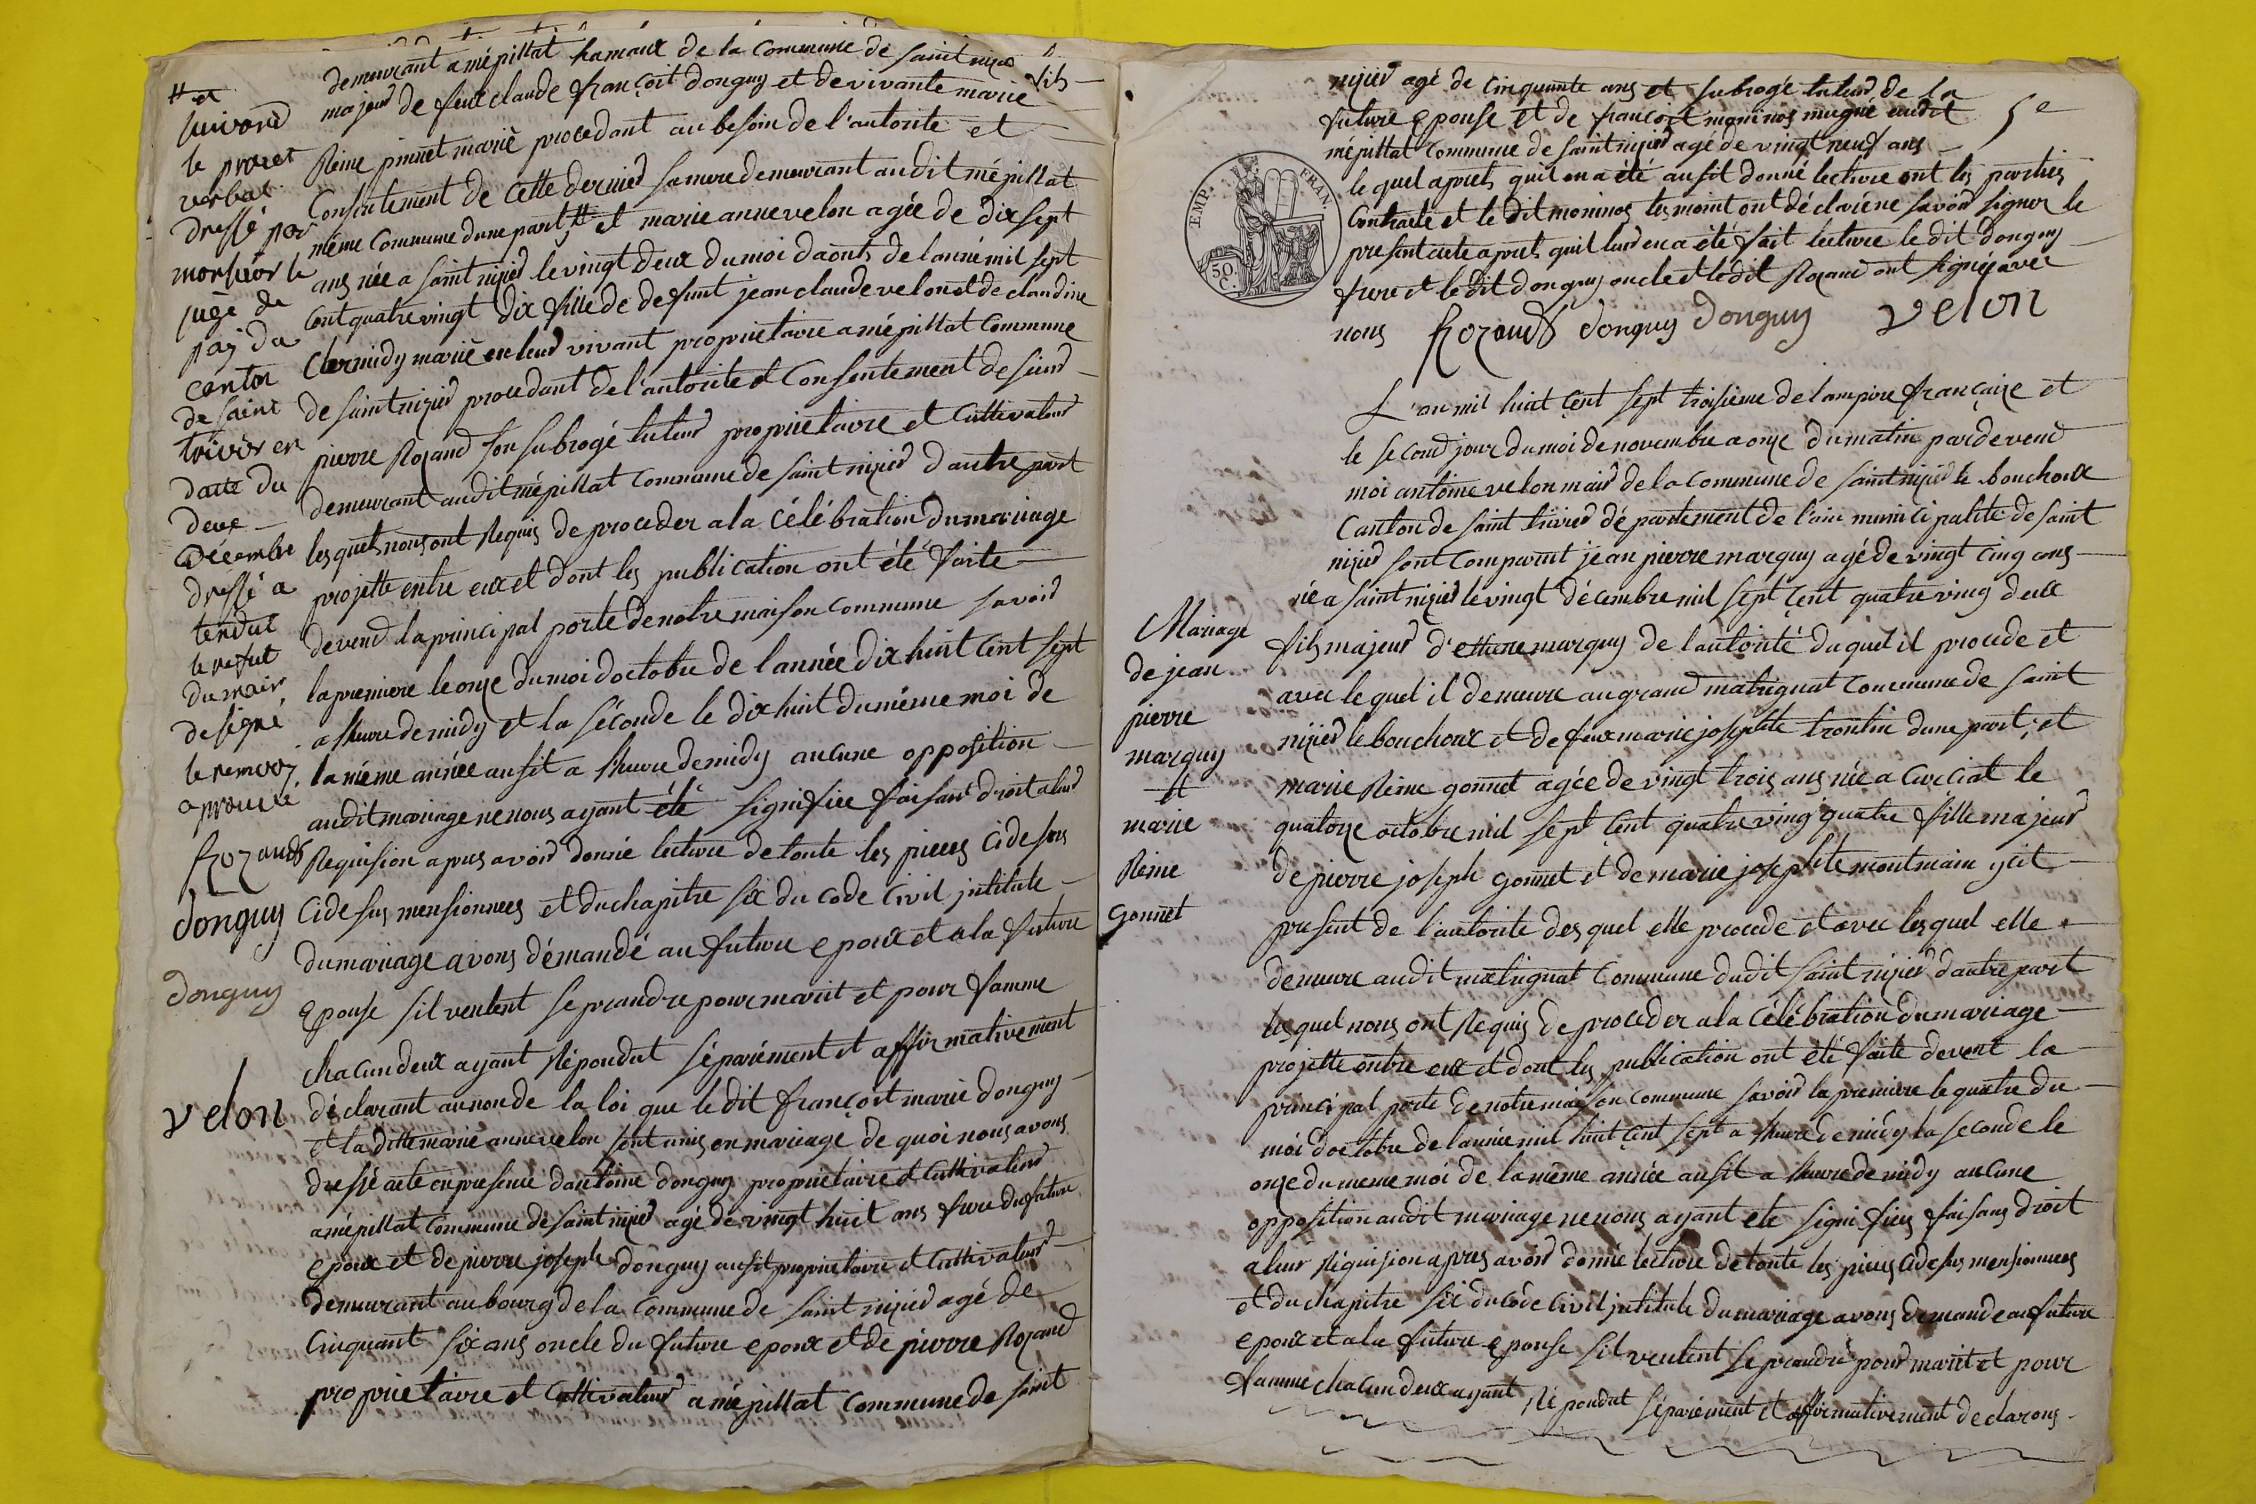 demeurant a mépillat hamaux de la commune de saint nizier fils
majeur de feux claude françoit donguy et de vivante marie
Reine pinnet marié procedant au besoin de l'autorite et
Consentement de cette dernier sa mere demeurant audit mépillat
même commune dune part # et marie anne velon agée de dix sept
ans née a saint nizier le vingt deux du moi daouts de lanné mil sept
cent quatre vingt dix fille de defunt jean claude velon et de claudine
Clermidy marié en leur vivant proprietaire a mépillat commune
de saint nizier procedant de l'autorite et Consentement de sieur
pierre Rozand son subrogé tuteur proprietaire et Cultivateur
demeurant audit mépillat commune de saint nizier d'autre part
lesquels nous ont Requis de proceder a la célébration du mariage
projette entre eux et dont les publication ont été faite
devend la principal porte de notre maison commune savoir
la premiere le onze du moi doctobre de l'année dix huit cent sept
a lheure de midy et la séconde le dix huit du même moi de
la même année ausit a lheure de midy aucune opposition
audit mariage ne nous ayant été signifiée faisant droit a leur
Requision apres avoir donné lecture de toute les pieces cidesus
cidesus mensionnees et du chapitre six du code civil intitule
du mariage avons démandé au future epoux et a la future
epouse sil veulent se prandre pour mariit et pour famme
chacun deux ayant Répondut séparément et affirmativement
déclarant au non de la loi que le dit françoit marie donguy
et la ditte marie anne velon sont unis en mariage de quoi nous avons
dressé acte en présence dantoine donguy proprietaire et cultivateur
a mépillat commune de saint nizier agé de vingt huit ans frere du future
epoux et de pierre joseph donguy ausit proprietaire et cultivateur
demeurant au bourg de la commune de saint nizier agé de
Cinquant six ans oncle du future epoux et de pierre Rozand
proprietaire et cultivateur a mépillat commune de saint
# et
suivand
le procet
verbal
dressé par
monsieur le
juge de
paiy du
canton
de saint
trivier en
datte du
deux
décembre
dressé a
tendut
le refut
du mair
de signé
le renvoy
aprouvé
Rozand
donguy
donguy
velon
nizier agé de cinquante ans et subrogé tuteur de la
future epouse et de françoit moninos mugné audit
mépillat commune de saint nizier agé de vingt neuf ans
5e
le quel aprets quil en a été ausit donné lecture ont les parties
Contracte et le dit moninos tesmoint ont déclaré ne savoir signer le
present acte aprets quil leur en a été fait lecture le dit donguy
frere et le dit donguy oncle et le dit Rozand ont signée avec
nous Rozand donguy donguy velon
TIMP. FRAN.
50. C.
L'an mil huit cent sept troisieme de lampire française et
le second jour du moi de novembre a onze du matin par devend
moi antoine velon mair de la commune de saint nizier le bouchoux
Canton de saint trivier département de l'ain municipalite de saint
nizier sont comparut jean pierre marguy agé de vingt cinq ans
née a saint nizier le vingt décembre mil sept cent quatre ving deux
fils majeur d'ettiene marguy de l'autorité duquel il procede et
avec lequel il demeure au grand matrignat commune de saint
nizier le bouchoux et de feux marie josephte trontin dune part, et
marie Reine gonnet agée de vingt trois ans née a Curciat le
quatorze octobre mil sept cent quatre ving quatre fille majeur
de pierre joseph gonnet et de marie josephte montmain ycit
present de l'autorite desquel elle procede et avec lesquel elle
demeure audit matrignat commune dudit saint nizier d'autre part
les quel nous ont Requis de proceder a la célébration du mariage
projette entre eux et dont les publication ont été faite devent la
principal porte de notre maison commune savoir la premiere le quatre du
moi doctobre de lannée mil huit cent sept a lheure de midy la seconde le
onze du meme moi de la même année ausit a lheure de midy aucune
opposition audit mariage ne nous ayant ete signifiees faisans droit
a leur Réquision apres avoir donné lecture de toute les pieces cidesus mensionnees
et du chapitre six du code civil intitule du mariage avons demande au future
epoux et a la future epouse sil veulent se prandre pour mariit et pour
famme chacun deux ayant Répondut séparément et affirmativement declarons
Mariage
de jean
pierre
marguy
#
marie
Reine
gonnet